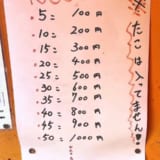 5コ 100円
10コ 200円
15コ 300円
20コ 400円
25コ 500円
30コ 600円
35コ 700円
40コ 800円
45コ 900円
50コ 1000円
※たこは入ってません!!